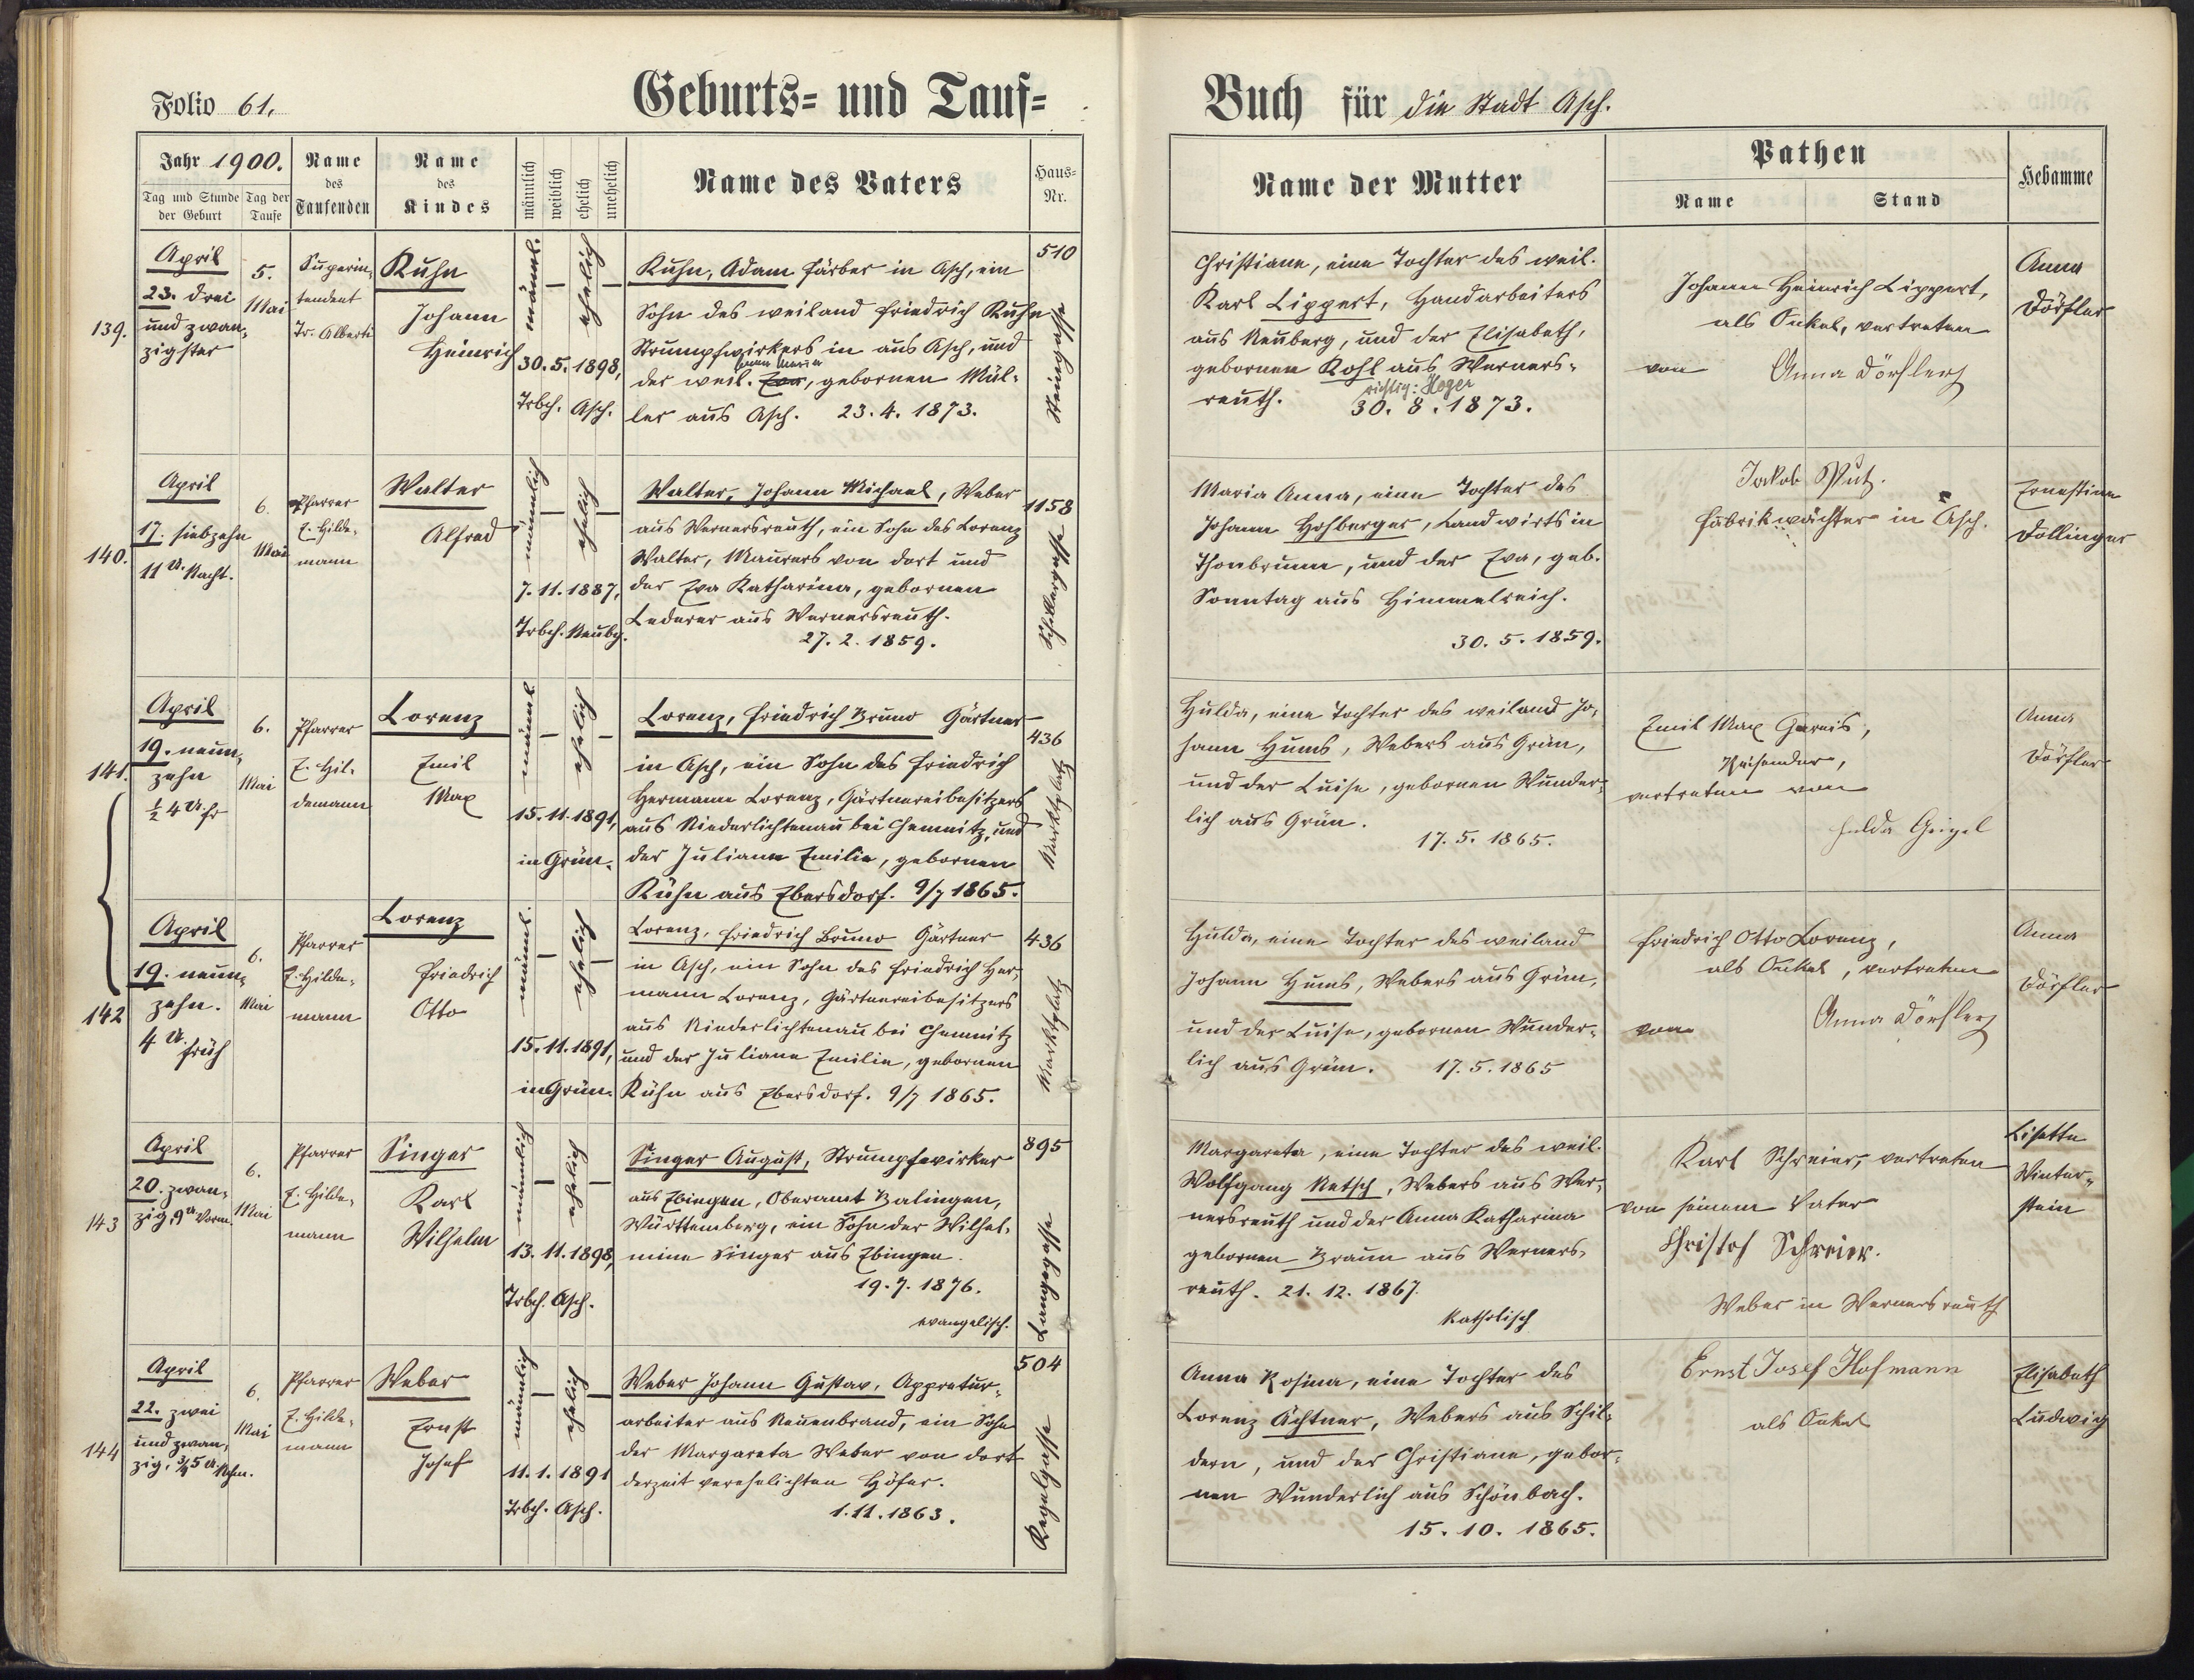 Folio 61.
Geburts- und Tauf-
Jahr 1900.
Tag und Stunde der Geburt
Tag der Taufe
Name des Taufenden
Name des Kindes
männlich
weiblich
ehelich
unehelich
Name des Vaters
Haus-Nr.
Buch für die Stadt Asch.
Name der Mutter
Pathen
Name
Stand
Hebamme
139.
April
23. drei
und zwan-
zigster
5.
Mai
Superin-
tendent
Tr. Alberti
Kuhn
Johann
Heinrich
männl.
ehelich
30. 5. 1898,
Trbch. Asch.
Kuhn, Adam Färber in Asch, ein
Sohn des weiland Friedrich Kuhn
Strumpfwirkers in aus Asch, und
der weil. Eva, gebornen Mül-
ler aus Asch. 23. 4. 1873.
510
Steingasse
Christiana, eine Tochter des weil.
Karl Lippert, Handarbeiters
aus Neuberg, und der Elisabeth,
gebornen Kohl aus Werners-
richtig: Heger
reuth. 30. 8. 1873.
Johann Heinrich Lippert,
als Onkel, vertreten
von Anna Dörfler
Anna
Dörfler
140.
April
17. siebzehn
11 U. Nacht.
6.
Mai
Pfarrer
E. Hilde-
mann
Walter
Alfred
männlich
ehelich
7. 11. 1887,
Trbch. Neubg.
Walter, Johann Michael, Weber
aus Wernersreuth, ein Sohn des Lorenz
Walter, Maurers von dort und
der Eva Katharina, gebornen
Lederer aus Wernersreuth.
27. 2. 1859.
1158
Schillergasse
Maria Anna, eine Tochter des
Johann Hofberger, Landwirts in
Thonbrunn, und der Eva, geb.
Sonntag aus Himmelreich.
30. 5. 1859.
Jakob Putz.
Fabrikwächter in Asch.
Ernestine
Döllinger
141.
April
19. neun-
zehn
½ 4 U. fr
6.
Mai
Pfarrer
E. Hil-
demann
Lorenz
Emil
Max
männl.
ehelich
15. 11. 1891,
in Grün.
Lorenz, Friedrich Bruno Gärtner
in Asch, ein Sohn des Friedrich
Hermann Lorenz, Gärtnereibesitzers
aus Niederlichtenau bei Chemnitz, und
der Juliane Emilie, gebornen
Kühn aus Ebersdorf. 9/7 1865.
436
Marktplatz
Hulda, eine Tochter des weiland Jo-
hann Hums, Webers aus Grün,
und der Luise, gebornen Wunder-
lich aus Grün.
17. 5. 1865.
Emil Max Gareis,
Reisender,
vertreten von
Hulda Geigel
Anna
Dörfler
142
April
19. neun-
zehn.
4 U. früh
6.
Mai
Pfarrer
E. Hilde-
mann
Lorenz
Friedrich
Otto
männl.
ehelich
15. 11. 1891,
in Grün.
Lorenz, Friedrich Bruno Gärtner
in Asch, ein Sohn des Friedrich Her-
mann Lorenz, Gärtnereibesitzers
aus Niederlichtenau bei Chemnitz
und der Juliane Emilie, gebornen
Kühn aus Ebersdorf. 9/7 1865.
436
Marktplatz
Hulda, eine Tochter des weiland
Johann Hums, Webers aus Grün,
und der Luise, gebornen Wunder-
lich aus Grün. 17. 5. 1865
Friedrich Otto Lorenz,
als Onkel, vertreten
von Anna Dörfler
Anna
Dörfler
143
April
20. zwan-
zig, 9 U Vorm.
6.
Mai
Pfarrer
E. Hilde-
mann
Singer
Karl
Wilhelm
männlich
ehelich
13. 11. 1898,
Trbch. Asch.
Singer August, Strumpfwirker
aus Ebingen, Oberamt Balingen,
Württemberg, ein Sohn der Wilhel-
mine Singer aus Ebingen.
19. 7. 1876.
evangelisch.
895
Langegasse
Margareta, eine Tochter des weil.
Wolfgang Netsch, Webers aus Wer-
nersreuth und der Anna Katharina
gebornen Braun aus Werners-
reuth. 21. 12. 1867.
katholisch
Karl Schreier, vertreten
von seinem Vater
Christof Schreier.
Weber in Wernersreuth
Lisette
Winter-
stein
144
April
22. zwei
und zwan-
zig, ¾5 U. Nchm.
6.
Mai
Pfarrer
E. Hilde-
mann
Weber
Ernst
Josef
männlich
ehelich
11. 1. 1891
Trbch. Asch.
Weber Johann Gustav, Appretur-
arbeiter aus Neuenbrand, ein Sohn
der Margareta Weber von dort
derzeit verehelichten Höfer.
1. 11. 1863.
504
Kegelgasse
Anna Rosina, eine Tochter des
LorenzÄchtner, Webers aus Schil-
dern, und der Christiane, gebor-
nen Wunderlich aus Schönbach.
15. 10. 1865.
Ernst Josef Hofmann
als Onkel
Elisabeth
Ludwig